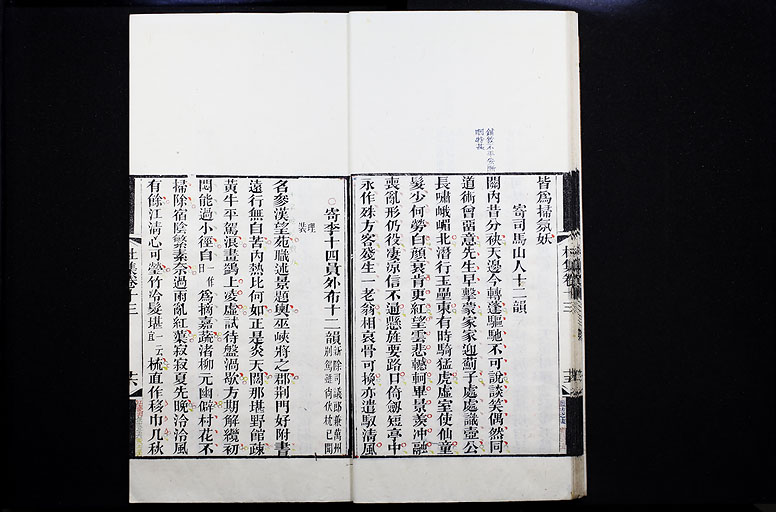 皆爲掃氛妖
寄司馬山人十二韻
關內昔分袂天邊今轉蓬驅馳不可說談笑偶然同
道術曾留意先生早擊蒙家家迎薊子處處識壺公
長嘯峨嵋北潛行玉壘東有時騎猛虎虛室使仙童
髮少何勞白顏衰肯更紅望雲悲轗軻畢景羨沖融
喪亂形仍役淒涼信不通懸旌要路口倚劒短亭中
永作殊方客殘生一老翁相哀骨可換亦遣馭清風
寄李十四員外布十二韻新除司議郎兼萬州別駕雖尚伏枕已聞理裝
名參漢望苑職述景題輿巫峽將之郡荊門好附書
遠行無自苦內熱比何如正是炎天闊那堪野館疎
黃牛平駕浪畫鷁上凌虛試待盤渦歇方期解纜初
悶能過小徑自一作日爲摘嘉蔬渚柳元幽僻村花不
掃除宿陰繁素柰過雨亂紅蕖寂寂夏先晚泠泠風
有餘江清心可瑩竹冷髮堪梳直作移巾几秋
杜集卷十三